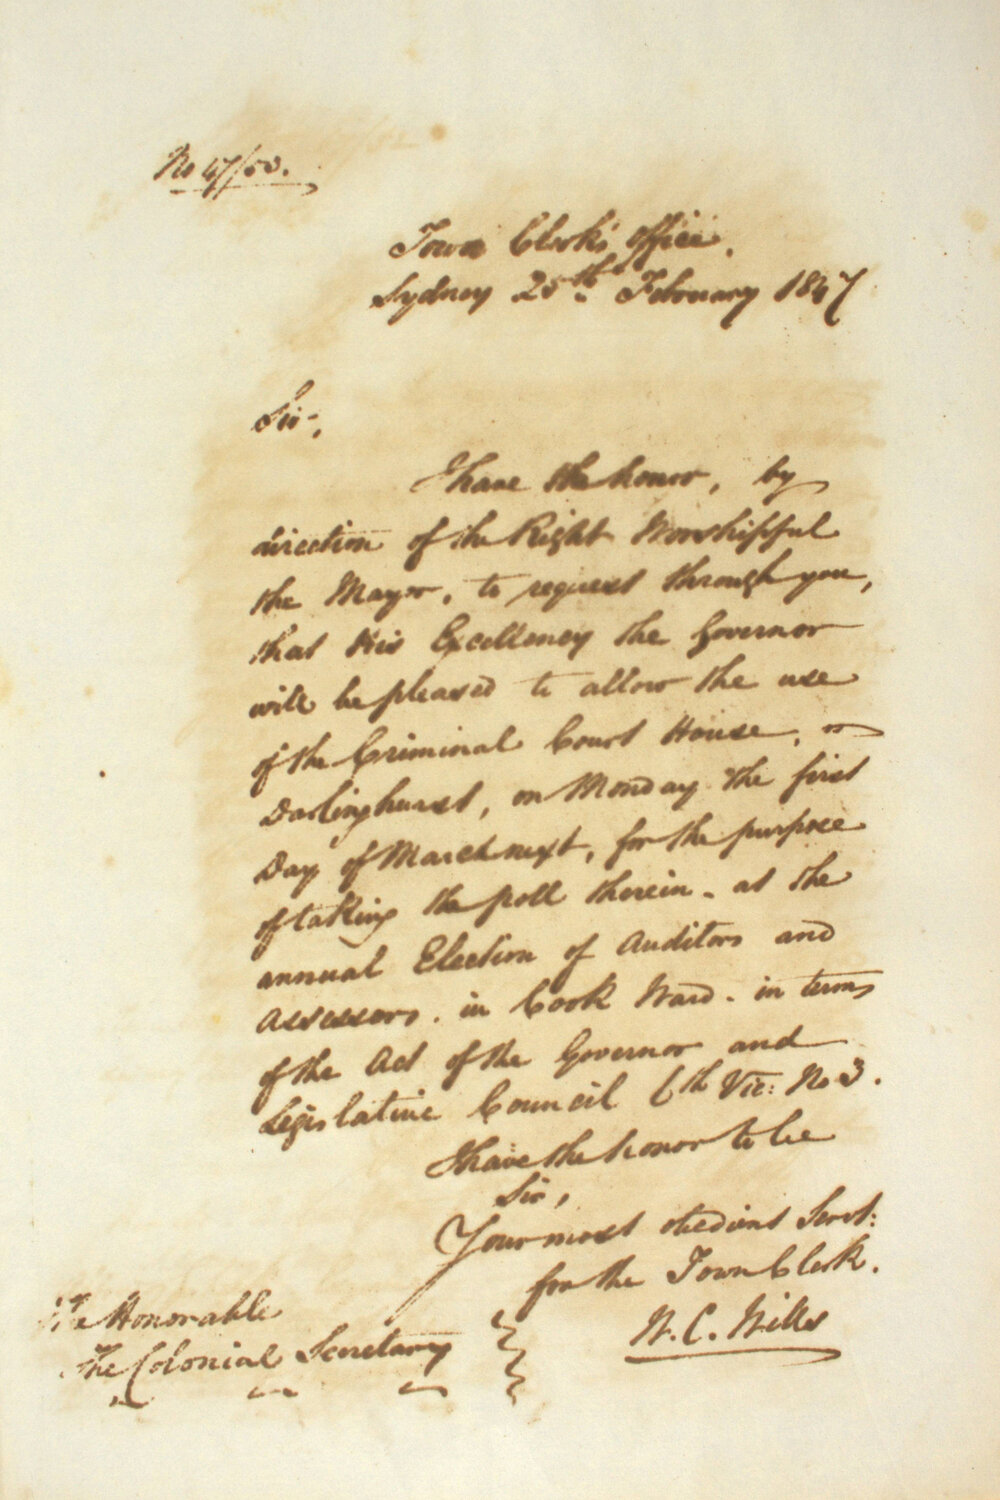 No 47/53.
Town Clerk's Office.
Sydney 25th February 1847
Sir,
I have the honor, by
direction of the Right Worshipful
the Mayor, to request through you,
that His Excellency the Governor
will be pleased to allow the use
of the Criminal Court House,
Darlinghurst, on Monday the first
Day of March next, for the purpose
of taking the poll therein - at the
annual Election of Auditors and
Assessors. in Cook Ward - in terms
of the Act of the Governor and
Legislative Council 6th Vic: No 3.
I have the honor to be
Sir,
Your most obedient Servt:
for the Town Clerk.
W. C. Wills
The Honorable
The Colonial Secretary